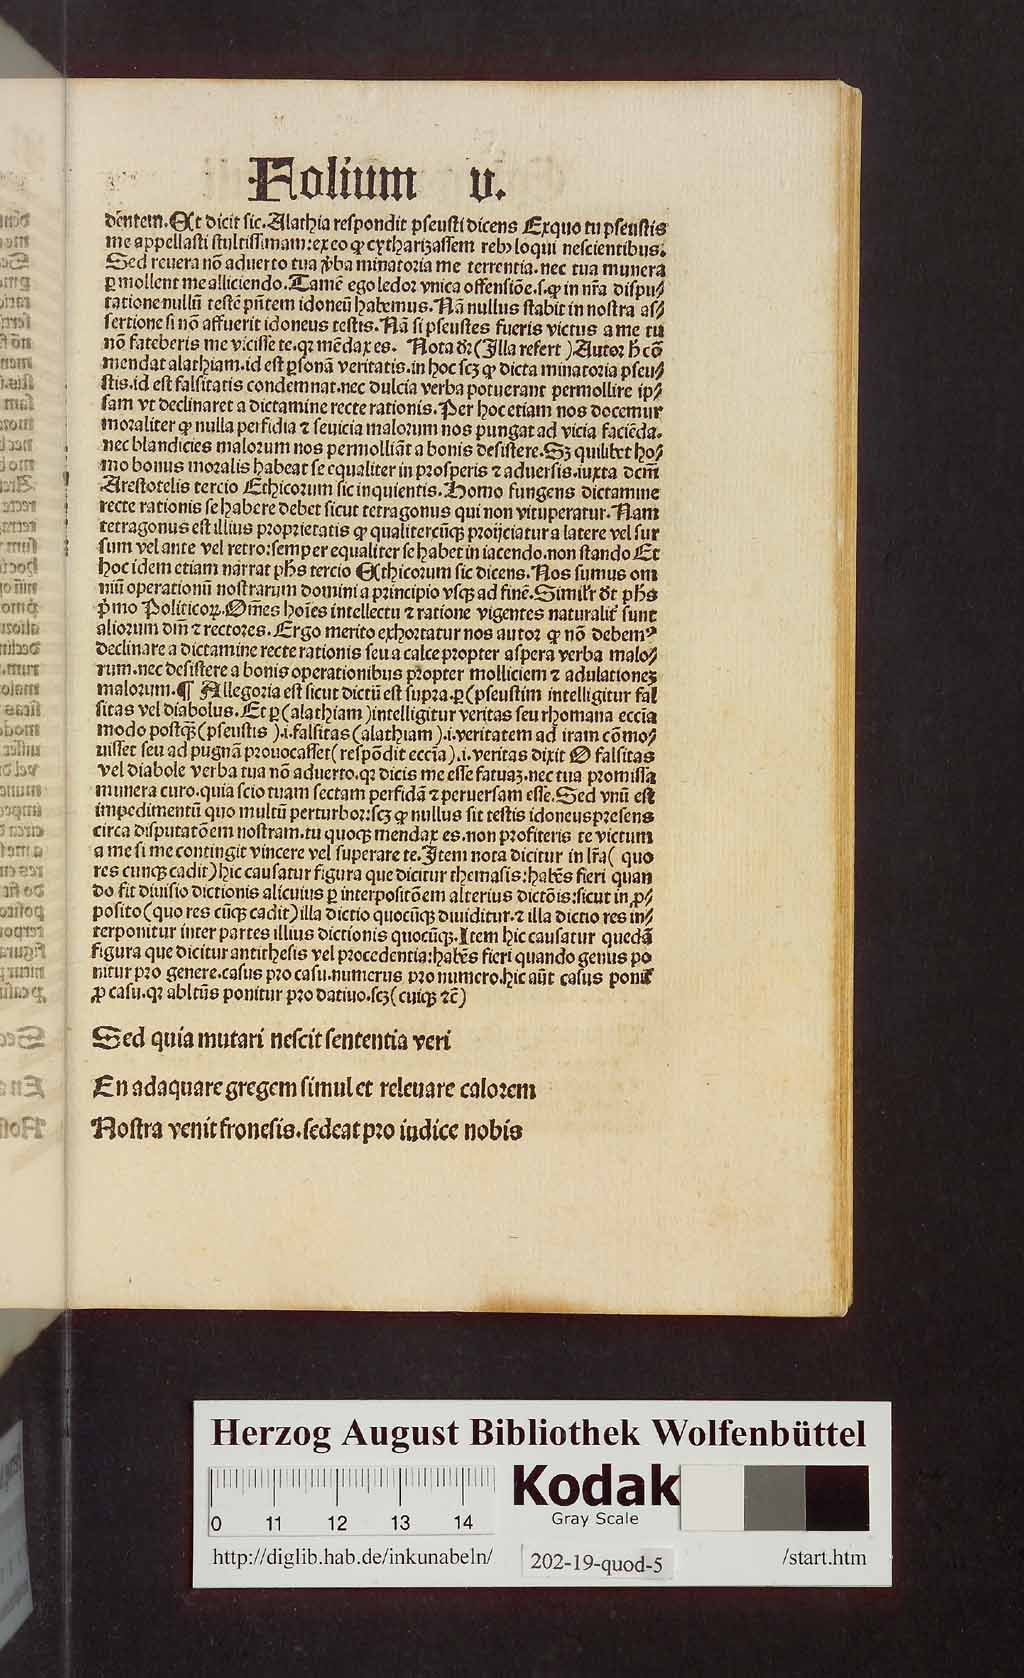 Folium v.
dẽntem. Et dicit sic. Alathia respondit pseusti dicens Exquo tu pseustis
me appellasti stultissimam: ex eo ꝙ cytharizassem rebꝰ loqui nescientibus.
Sed reuera nõ aduerto tua ꝟba minatoria me terrentia. nec tua munera
ꝑmollent me alliciendo. Tamẽ ego ledor vnica offensiõe. s. ꝙ in nr̃a dispu⸗
tatione nullũ testẽ pñtem idoneũ habemus. Nã nullus stabit in nostra as⸗
sertione si nõ affuerit idoneus testis. Nã si pseustes fueris victus a me tu
nõ fateberis me vicisse te. qꝛ mẽdax es. Nota dr̃ (Illa refert) Autor h̃ cõ
mendat alathiam. id est ꝑsonã veritatis. in hoc scꝫ ꝙ dicta minatoria pseu⸗
stis. id est falsitatis condemnat. nec dulcia verba potuerant permollire ip⸗
sam vt declinaret a dictamine recte rationis. Per hoc etiam nos docemur
moraliter ꝙ nulla perfidia ⁊ seuicia malorum nos pungat ad vicia faciẽda.
nec blandicies malorum nos permolliãt a bonis desistere. Sꝫ quilibet ho⸗
mo bonus moralis habeat se equaliter in prosperis ⁊ aduersis. iuxta dcm̃
Arestotelis tercio Ethicorum sic inquientis. Homo fungens dictamine
recte rationis se habere debet sicut tetragonus qui non vituperatur. Nam
tetragonus est illius proprietatis ꝙ qualitercũqꝫ proijciatur a latere vel sur
sum vel ante vel retro: semper equaliter se habet in iacendo. non stando Et
hoc idem etiam narrat phs̃ tercio Ethicorum sic dicens. Nos sumus om
niũ operationũ nostrarum domini a principio vsqꝫ ad finẽ. Simil'r dt̃ phs̃
p̃mo Politicoꝝ. Oм̃es hoĩes intellectu ⁊ ratione vigentes naturalit̃ sunt
aliorum dñi ⁊ rectores. Ergo merito exhortatur nos autor ꝙ nõ debemꝰ
declinare a dictamine recte rationis seu a calce propter aspera verba malo⸗
rum. nec desistere a bonis operationibus propter molliciem ⁊ adulationeꝫ
malorum. ¶ Allegoria est sicut dictũ est supra. ꝑ (pseustim intelligitur fal
sitas vel diabolus. Et ꝑ (alathiam) intelligitur veritas seu rhomana eccĩa
modo postqꝫ (pseustis) .i. falsitas (alathiam) .i. veritatem ad iram cõmo⸗
uisset seu ad pugnã prouocasset (respõdit eccĩa) .i. veritas dixit O falsitas
vel diabole verba tua nõ aduerto. qꝛ dicis me esse fatuaꝫ. nec tua promissa
munera curo. quia scio tuam sectam perfidã ⁊ peruersam esse. Sed vnũ est
impedimentũ quo multũ perturbor: scꝫ ꝙ nullus sit testis idoneus presens
circa disputatõem nostram. tu quoqꝫ mendax es. non profiteris te victum
a me si me contingit vincere vel superare te. Item nota dicitur in lr̃a (quo
res cunqꝫ cadit) hic causatur figura que dicitur themasis: habẽs fieri quan
do fit diuisio dictionis alicuius ꝑ interpositõem alterius dictõis: sicut in ꝓ⸗
posito (quo res cũqꝫ cadit) illa dictio quocũqꝫ diuiditur. ⁊ illa dictio res in⸗
terponitur inter partes illius dictionis quocũqꝫ. Item hic causatur quedã
figura que dicitur antithesis vel procedentia: habẽs fieri quando genus po
nitur pro genere. casus pro casu. numerus pro numero. hic aũt casus ponit̃
ꝓ casu. qꝛ abltũs ponitur pro datiuo. scꝫ (cuiqꝫ ⁊c̃)
Sed quia mutari nescit sententia veri
En adaquare gregem simul et releuare calorem
Nostra venit fronesis. sedeat pro iudice nobis
Herzog August Bibliothek Wolfenbüttel
0 11 12 13 14
Kodak
Gray Scale
http://diglib.hab.de/inkunabeln/ 202-19-quod-5 /start.htm